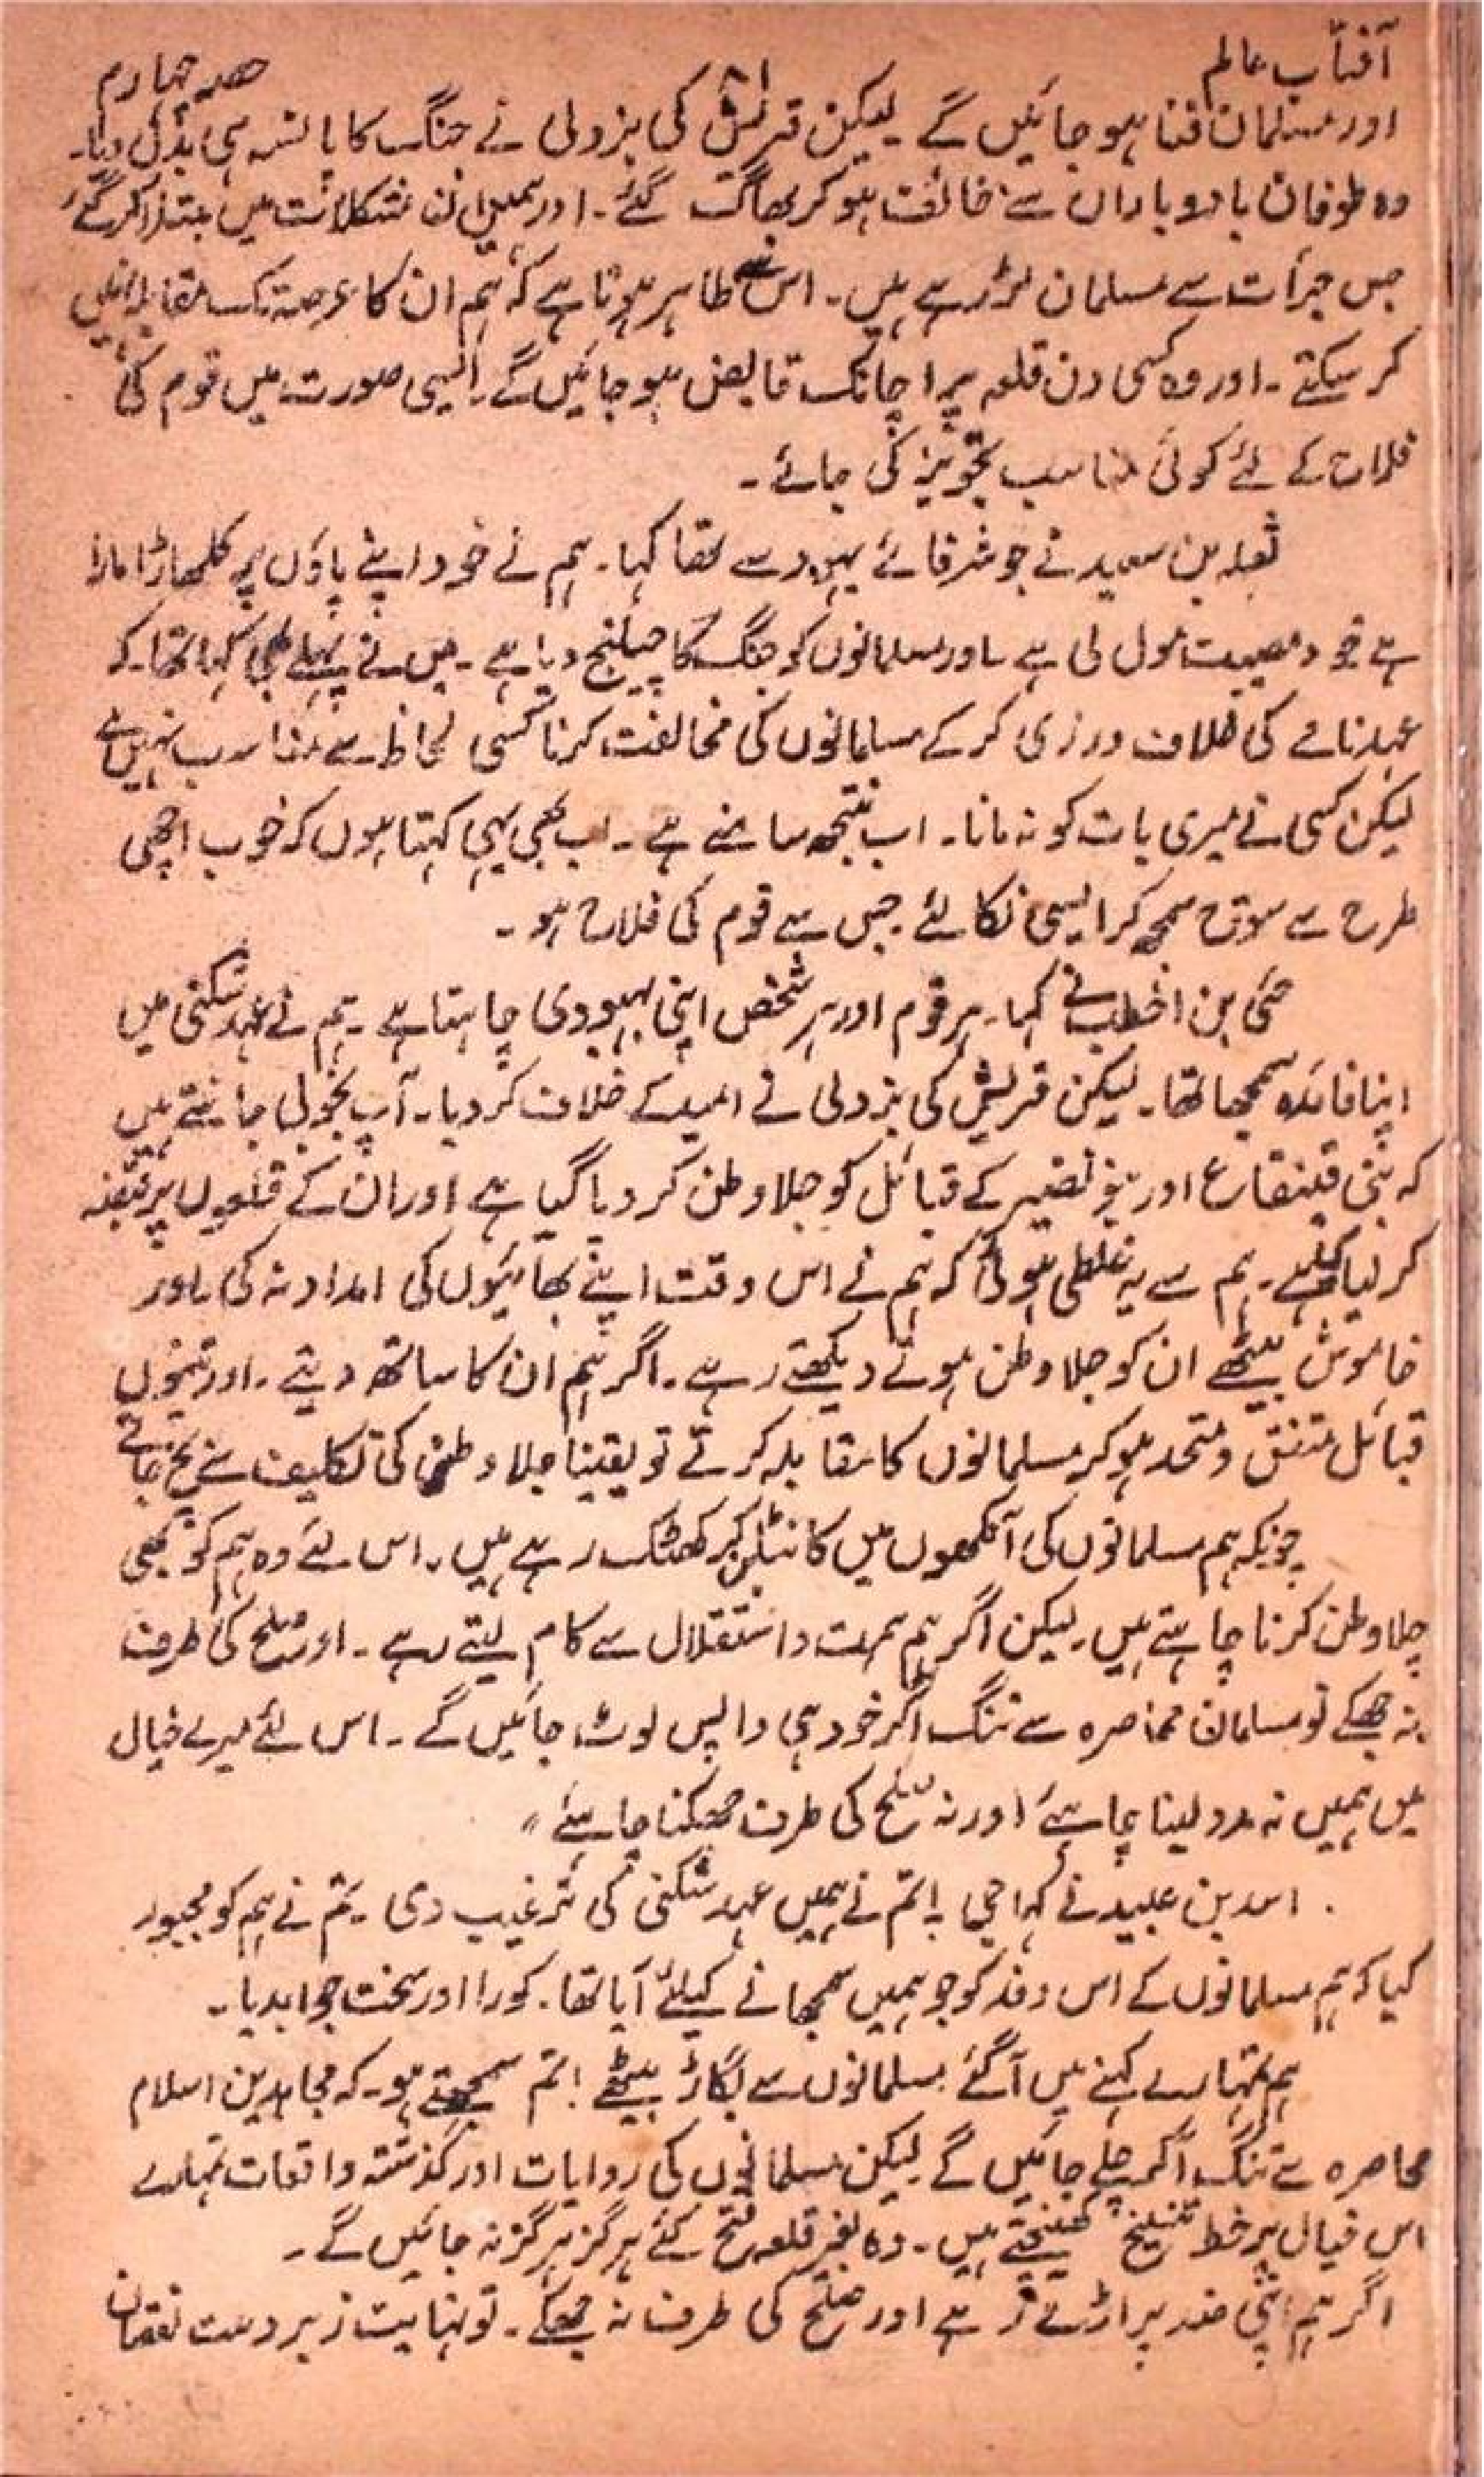 آفتاب عالم
حصہ چہارم
اور مسلمان فنا ہو جائیں گے لیکن قریش کی بزدلی نے جنگ کا پانسہ ہی بدل دیا۔
وہ طوفان باد و باراں سے خائف ہو کر بھاگ گئے۔ اور ہمیں ان مشکلات میں مبتلا کر گئے
جس جرأت سے مسلمان لڑ رہے ہیں۔ اس سے ظاہر ہوتا ہے کہ ہم ان کا عرصہ تک مقابلہ نہیں
کر سکتے۔ اور وہ کسی دن قلعہ پر اچانک قابض ہو جائیں گے۔ ایسی صورت میں قوم کی
فلاح کے لئے کوئی مناسب تجویز کی جائے۔
ثعلبہ بن سعید نے جو شرفائے یہود سے تھا کہا۔ ہم نے خود اپنے پاؤں پر کلہاڑا مارا
ہے خود مصیبت مول لی ہے۔ اور مسلمانوں کو جنگ کا چیلنج دیا ہے۔ میں نے پہلے بھی کہا تھا۔ کہ
عہدنامے کی خلاف ورزی کر کے مسلمانوں کی مخالفت کرنا کسی لحاظ سے مناسب نہیں ہے
لیکن کسی نے میری بات کو نہ مانا۔ اب نتیجہ سامنے ہے۔ اب بھی یہی کہتا ہوں کہ خوب اچھی
طرح سے سوچ سمجھ کر ایسی نکالئے جس سے قوم کی فلاح ہو۔
حئی بن اخطب نے کہا۔ ہر قوم اور ہر شخص اپنی بہبودی چاہتا ہے۔ ہم نے عہد شکنی میں
اپنا فائدہ سمجھا تھا۔ لیکن قریش کی بزدلی نے امید کے خلاف کر دیا۔ آپ بخوبی جانتے ہیں
کہ بنی قینقاع اور بنو نضیر کے قبائل کو جلاوطن کر دیا گیا ہے اور ان کے قلعوں پر قبضہ
کر لیا ہے۔ ہم سے یہ غلطی ہوئی کہ ہم نے اس وقت اپنے بھائیوں کی امداد نہ کی۔ اور
خاموش بیٹھے ان کو جلاوطن ہوتے دیکھتے رہے۔ اگر ہم ان کا ساتھ دیتے۔ اور تینوں
قبائل متفق و متحد ہو کر مسلمانوں کا مقابلہ کرتے تو یقینا جلاوطنی کی تکلیف سے بچ جاتے
چونکہ ہم مسلمانوں کی آنکھوں میں کانٹا بن کر کھٹک رہے ہیں۔ اس لئے وہ ہم کو بھی
جلاوطن کرنا چاہتے ہیں۔ لیکن اگر ہم ہمت و استقلال سے کام لیتے رہے۔ اور صلح کی طرف
نہ جھکے تو مسلمان محاصرہ سے تنگ آکر خود ہی واپس لوٹ جائیں گے۔ اس لئے میرے خیال
میں ہمیں نہ مدد لینا چاہئے اور نہ صلح کی طرف جھکنا چاہئے"
اسد بن عبید نے کہا حئی! تم نے ہمیں عہد شکنی کی ترغیب دی۔ تم نے ہم کو مجبور
کیا کہ ہم مسلمانوں کے اس وفد کو جو ہمیں سمجھانے کیلئے آیا تھا۔ کورا اور سخت جواب دیا۔
ہم تمہارے کہنے میں آ گئے مسلمانوں سے بگاڑ بیٹھے! تم سمجھتے ہو۔ کہ مجاہدین اسلام
محاصرہ سے تنگ آکر چلے جائیں گے لیکن مسلمانوں کی روایات اور گذشتہ واقعات تمہارے
اس خیال پر خط تنسیخ کھینچتے ہیں۔ وہ بغیر قلعہ فتح کئے ہرگز ہرگز نہ جائیں گے۔
اگر ہم اپنی ضد پر اڑے رہے اور صلح کی طرف نہ جھکے۔ تو نہایت زبردست نقصان